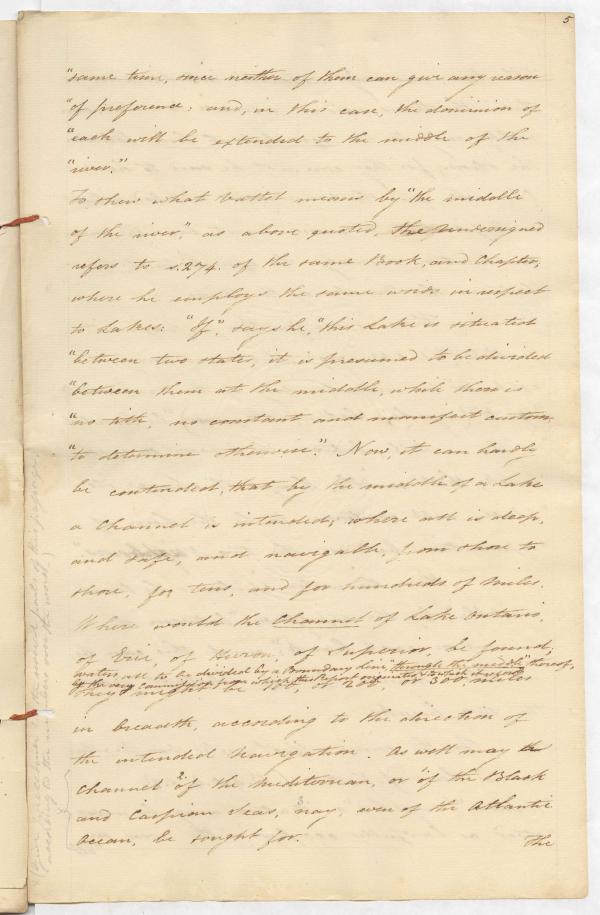 5
"same time, since neither of them can give any reason
"of preference: and, in this case, the dominion of
"each will be extended to the middle of the
"river."
To shew what Vattel means by "the middle
of the river," as above quoted, the Undersigned
refers to s. 274. of the same Book, and Chapter,
where he employs the same words in respect
to Lakes: "If", says he, "this Lake is situated
"between two states, it is presumed to be divided
"between them at the middle, while there is
"no title, no constant and manifest custom,
"to determine otherwise." Now, it can hardly
be contended, that by the middle of a Lake
a Channel is intended; where all is deep,
and safe, and navigable, from shore to
shore, for tens, and for hundreds of miles.
Where would the Channel of Lake Ontario,
of Erie, of Huron, of Superior, be found;
waters, all to be divided by a Boundary Line, "through the middle" thereof,
by the very Commission from which this Report originates & to which it responds
They might be 100, or 200, or 300 miles
in breadth, according to the direction of
the intended Navigation. As well may the
Channel "of the Mediterranean, or "of the Black
and Caspian Seas," nay, even of the Atlantic
Ocean, be sought for.
The
according to the numbers over the words